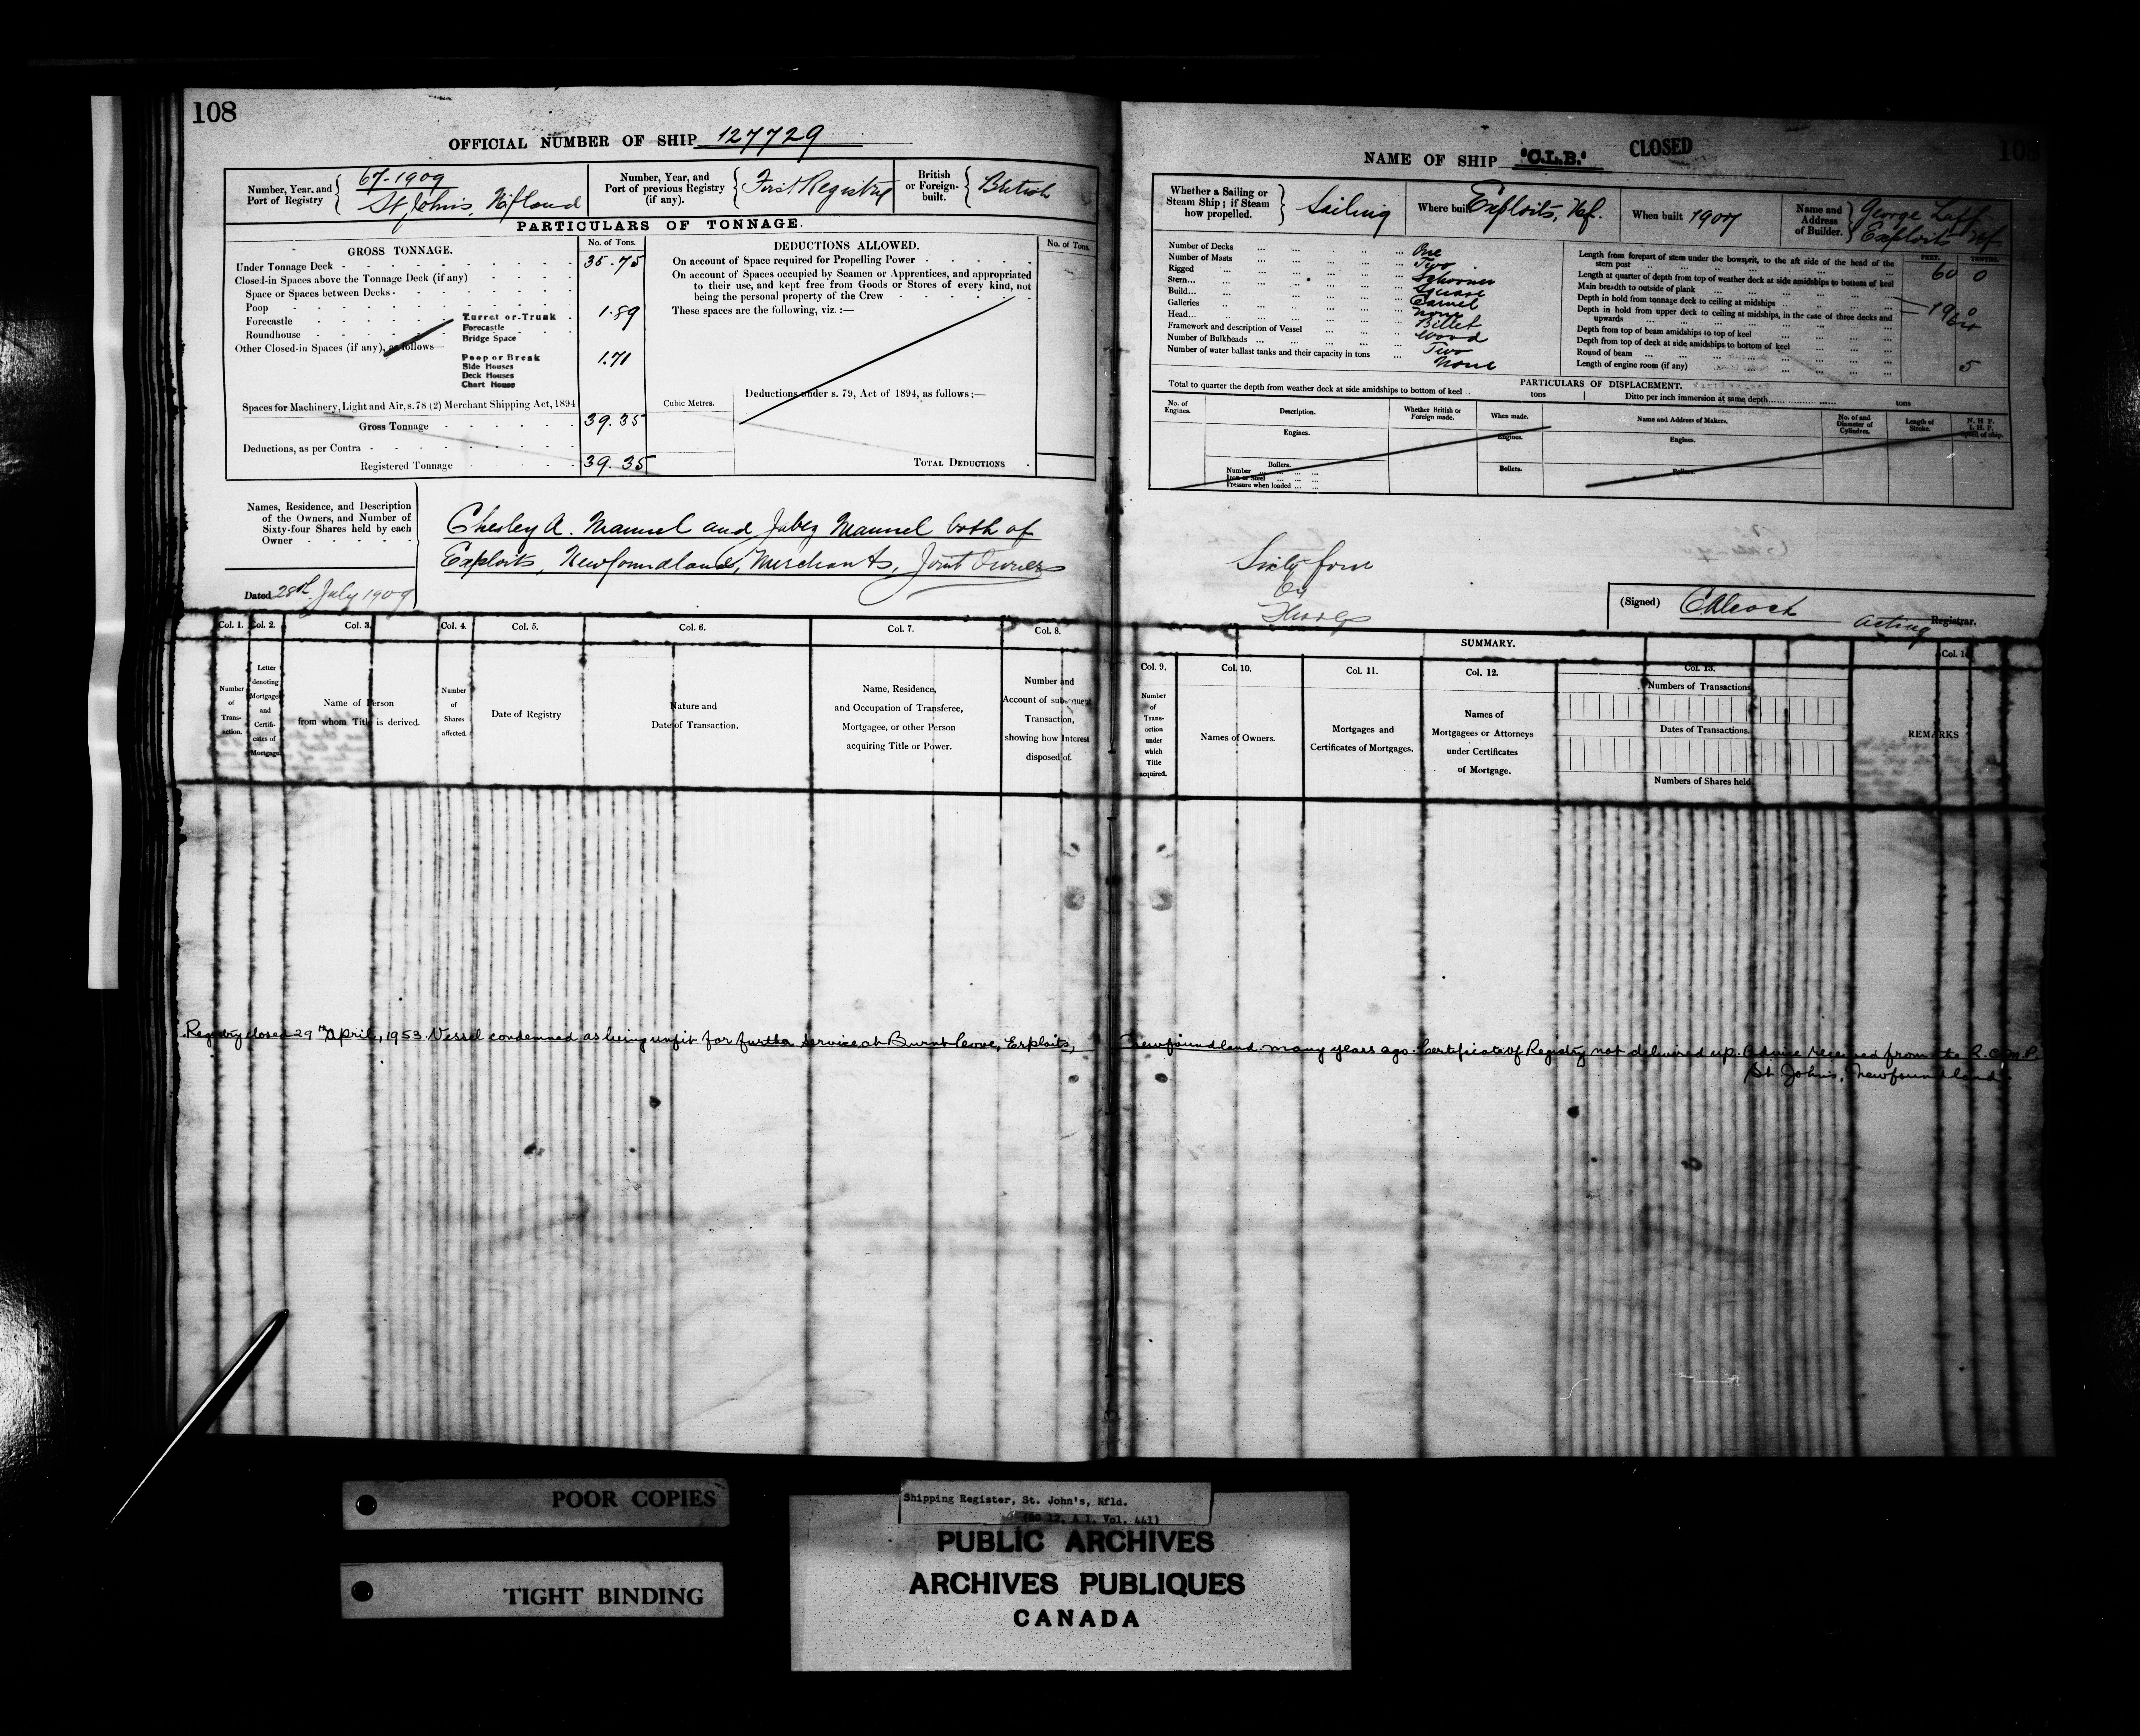 108
OFFICIAL NUMBER OF SHIP 127729
Number, Year, and Port of Registry
67-1909
St John's, Nfland
Number, Year, and Port of previous Registry (if any).
First Registry
British or Foreign-built.
British
PARTICULARS OF TONNAGE.
GROSS TONNAGE.
No. of Tons.
DEDUCTIONS ALLOWED.
No. of Tons.
Under Tonnage Deck 35.75
Closed-in Spaces above the Tonnage Deck (if any)
Space or Spaces between Decks
Poop
Forecastle
Roundhouse
Other Closed-in Spaces (if any), as follows—
Turret or Trunk 1.89
Forecastle
Bridge Space
Poop or Break 1.71
Side Houses
Deck Houses
Chart House
Spaces for Machinery, Light and Air, s. 78 (2) Merchant Shipping Act, 1894
Gross Tonnage 39.35
Deductions, as per Contra
Registered Tonnage 39.35
On account of Space required for Propelling Power
On account of Spaces occupied by Seamen or Apprentices, and appropriated
to their use, and kept free from Goods or Stores of every kind, not
being the personal property of the Crew
These spaces are the following, viz. :—
Cubic Metres.
Deductions under s. 79, Act of 1894, as follows :—
TOTAL DEDUCTIONS
Names, Residence, and Description
of the Owners, and Number of
Sixty-four Shares held by each
Owner
Chesley A. Manuel and Jabez Manuel both of
Exploits, Newfoundland, Merchants, Joint Owners
Dated 28th July 1909
Col. 1. Col. 2. Col. 3. Col. 4. Col. 5. Col. 6. Col. 7. Col. 8.
Number of Trans-action.
Letter denoting Mortgage and Certifi-cates of Mortgage.
Name of Person from whom Title is derived.
Number of Shares affected.
Date of Registry
Nature and Date of Transaction.
Name, Residence, and Occupation of Transferee, Mortgagee, or other Person acquiring Title or Power.
Number and Account of subsequent Transaction, showing how Interest disposed of.
Registry closed 29th April, 1953. Vessel condemned as being unfit for further service at Burnt Cove, Exploits,
108
NAME OF SHIP "C.L.B." CLOSED
Whether a Sailing or Steam Ship ; if Steam how propelled.
Sailing
Where built
Exploits, Nf.
When built 1907
Name and Address of Builder.
George
Exploits Nf
Number of Decks One
Number of Masts Two
Rigged Schooner
Stern Square
Build Carvel
Galleries none
Head Billet
Framework and description of Vessel Wood
Number of Bulkheads Two
Number of water ballast tanks and their capacity in tons None
FEET. TENTHS.
Length from forepart of stem under the bowsprit, to the aft side of the head of the
stern post 60 0
Length at quarter of depth from top of weather deck at side amidships to bottom of keel
Main breadth to outside of plank 19 0
Depth in hold from tonnage deck to ceiling at midships
Depth in hold from upper deck to ceiling at midships, in the case of three decks and
upwards
Depth from top of beam amidships to top of keel
Depth from top of deck at side amidships to bottom of keel
Round of beam 5
Length of engine room (if any)
PARTICULARS OF DISPLACEMENT.
Total to quarter the depth from weather deck at side amidships to bottom of keel tons
Ditto per inch immersion at same depth tons
No. of Engines.
Description.
Whether British or Foreign made.
When made.
Name and Address of Makers.
No. of and Diameter of Cylinders.
Length of Stroke.
N. H. P.
I. H. P.
Speed of Ship.
Engines. Engines. Engines.
Boilers. Boilers. Boilers.
Number
Iron or Steel
Pressure when loaded
Sixty four
(Signed)
Acting Registrar.
SUMMARY.
Col. 9. Col. 10. Col. 11. Col. 12. Col. 13. Col. 14
Number of Trans-action under which Title acquired.
Names of Owners.
Mortgages and Certificates of Mortgages.
Names of Mortgagees or Attorneys under Certificates of Mortgage.
Numbers of Transactions
Dates of Transactions.
Numbers of Shares held
REMARKS
Newfoundland many years ago. Certificate of Registry not delivered up. Advice received from the R.C.M.P.
St. John's, Newfoundland.
POOR COPIES
TIGHT BINDING
Shipping Register, St. John's, Nfld.
(RG 12, A 1, Vol. 441)
PUBLIC ARCHIVES
ARCHIVES PUBLIQUES
CANADA